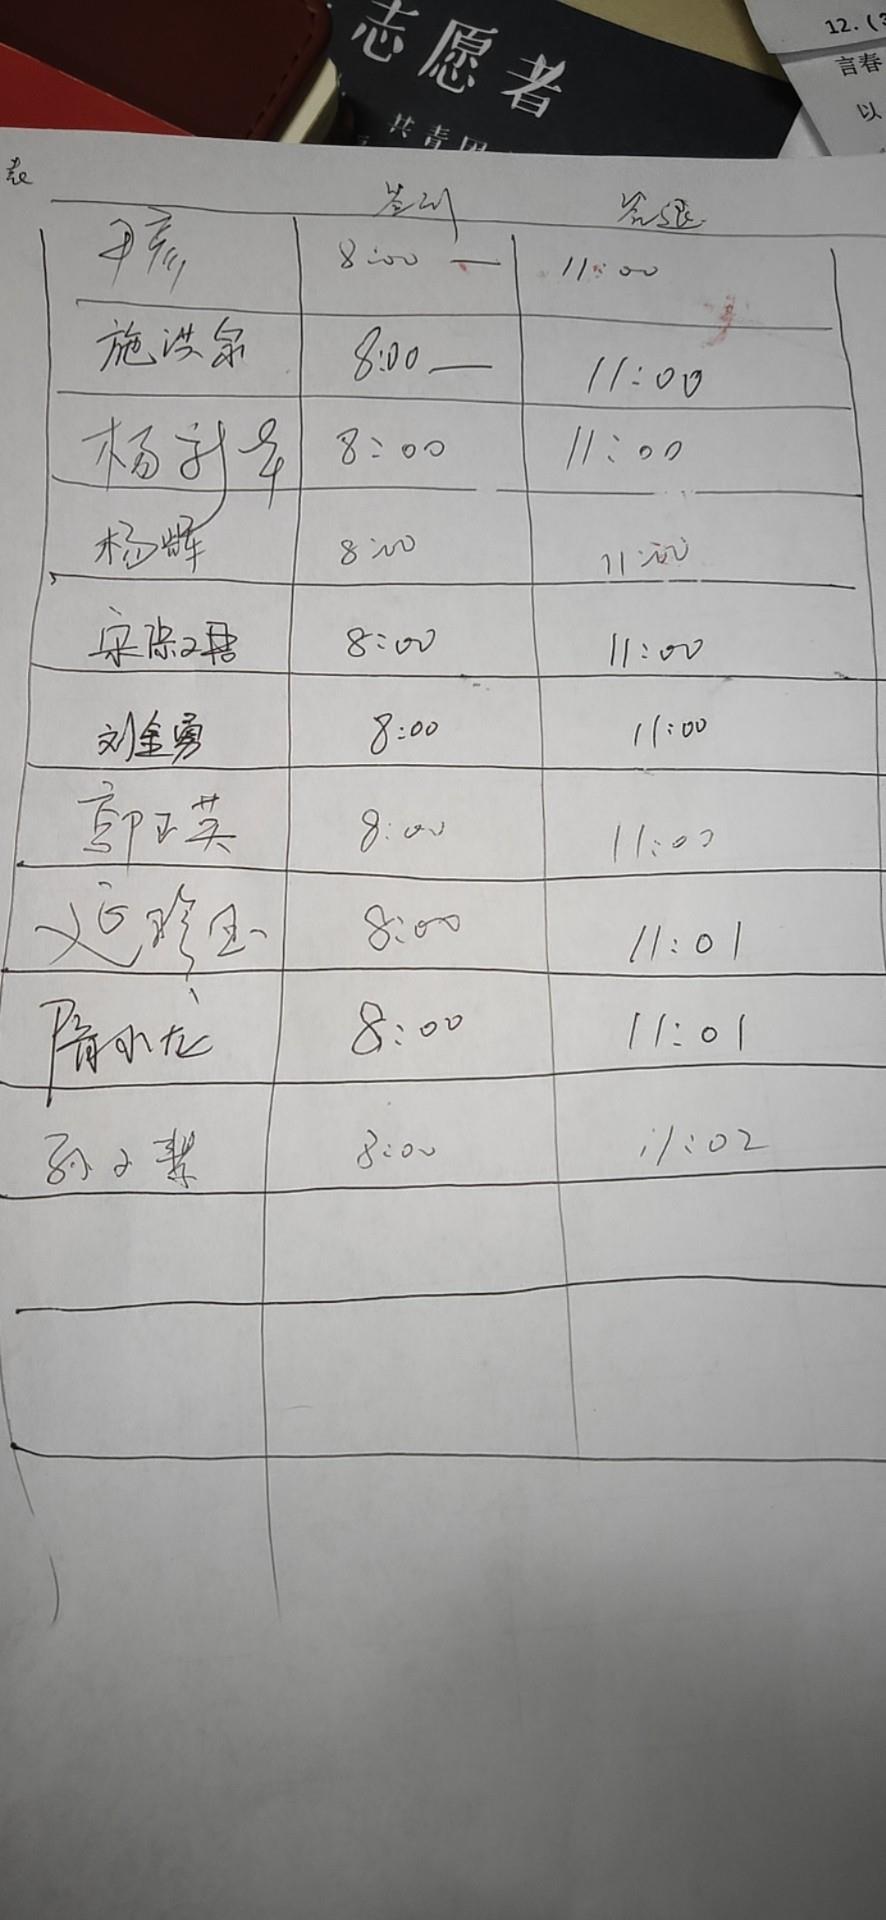 志愿者
共青团
12.(
言春
以
表
签到 签退
8:00 — 11:00
施洪泉 8:00 — 11:00
杨新华 8:00 11:00
杨辉 8:00 11:00
8:00 11:00
刘金勇 8:00 11:00
郭玉英 8:00 11:00
延珍玉 8:00 11:01
隋永龙 8:00 11:01
孙 8:00 11:02